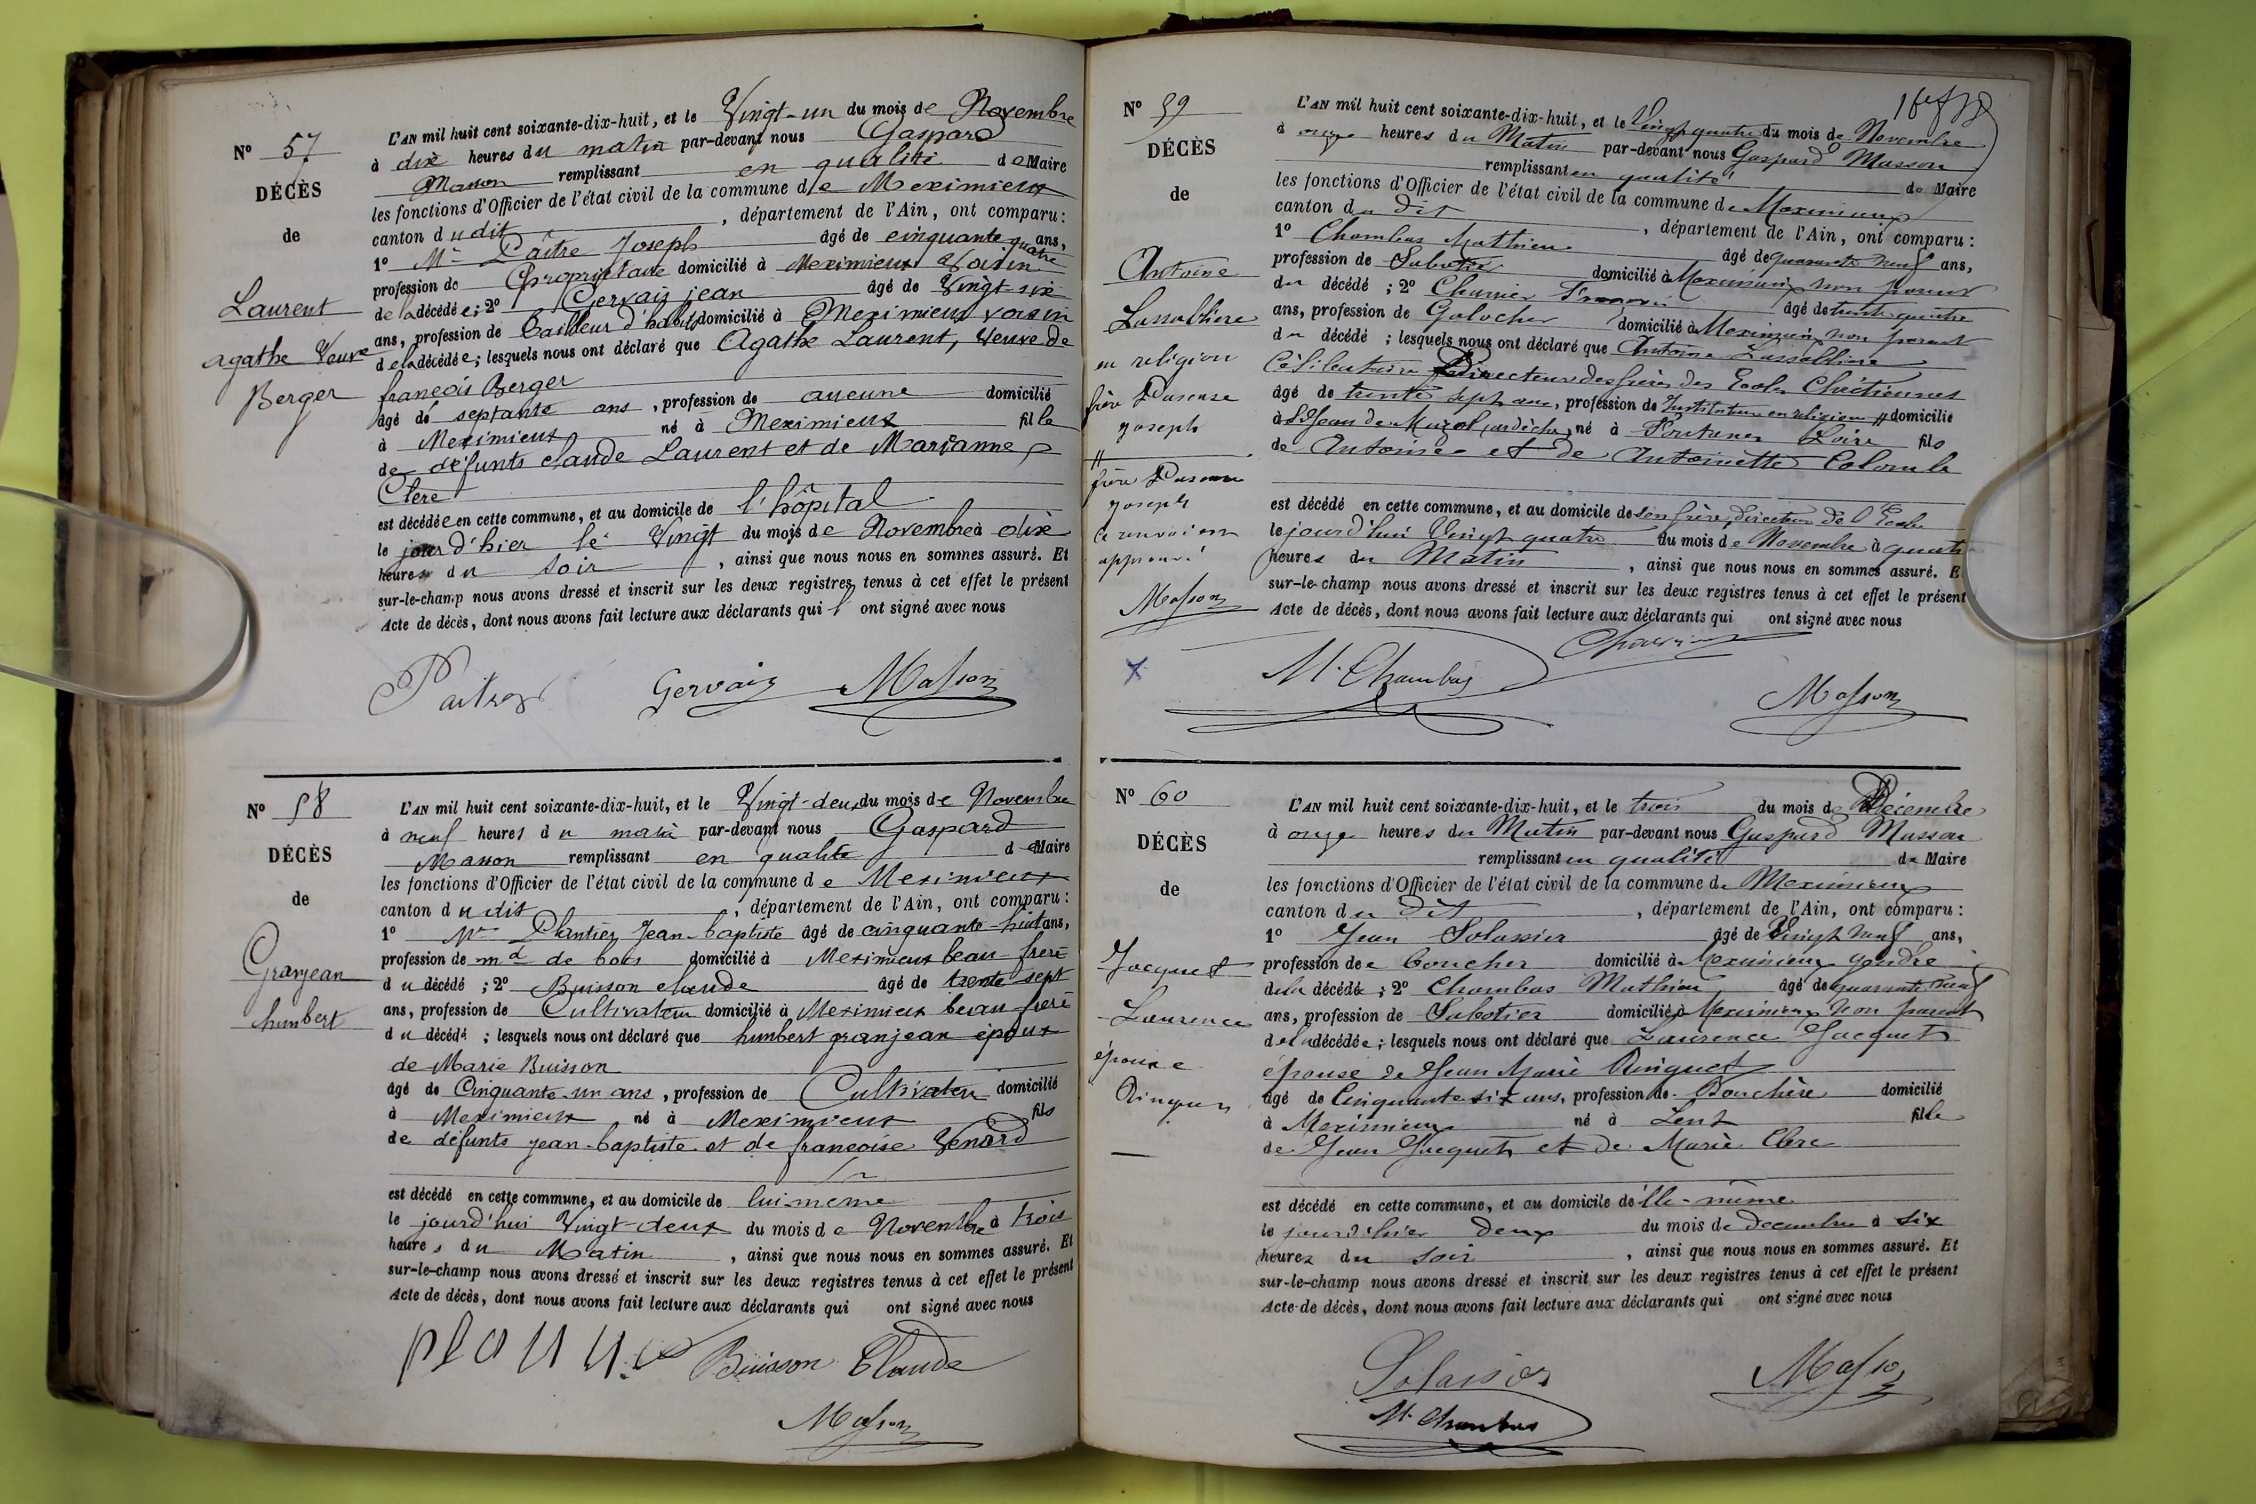 N° 57
DÉCÈS
de
Laurent
agathe Veuve
Berger
L'AN mil huit cent soixante-dix-huit, et le Vingt-un du mois de Novembre
à dix heures du matin par-devant nous Gaspard
Masson remplissant en qualité de Maire
les fonctions d'Officier de l'état civil de la commune de Meximieux
canton dudit, département de l'Ain, ont comparu:
1° Mr Paitre Joseph âgé de cinquante quatre ans,
profession de Propriétaire domicilié à Meximieux voisin
de la décédée; 2° Gervaiz jean âgé de Vingt-six
ans, profession de tailleur d'habits domicilié à Meximieux voisin
de la décédée; lesquels nous ont déclaré que Agathe Laurent, Veuve de
françois Berger
âgé de septante ans, profession de aucune domicilié
à Meximieux né à Meximieux fille
de défunts claude Laurent et de Marianne
Clere
est décédée en cette commune, et au domicile de l'hôpital
le jour d'hier le Vingt du mois de Novembre à dix
heures du soir, ainsi que nous nous en sommes assuré. Et
sur-le-champ nous avons dressé et inscrit sur les deux registres tenus à cet effet le présent
Acte de décès, dont nous avons fait lecture aux déclarants qui ont signé avec nous
Gervaiz Masson
N° 58
DÉCÈS
de
Granjean
humbert
L'AN mil huit cent soixante-dix-huit, et le Vingt-deux du mois de Novembre
à neuf heures du matin par-devant nous Gaspard
Masson remplissant en qualité de Maire
les fonctions d'Officier de l'état civil de la commune de Meximieux
canton dudit, département de l'Ain, ont comparu:
1° Mr Plantier Jean-baptiste âgé de cinquante-huit ans,
profession de md de bois domicilié à Meximieux beau-frere
du décédé; 2° Buisson claude âgé de trente sept
ans, profession de Cultivateur domicilié à Meximieux beau-frere
du décédé; lesquels nous ont déclaré que humbert granjean époux
de Marie Buisson
âgé de Cinquante-un ans, profession de Cultivateur domicilié
à Meximieux né à Meximieux fils
de défunts jean-baptiste et de françoise Venard
est décédé en cette commune, et au domicile de lui-même
le jourd'hui Vingt-deux du mois de Novembre à trois
heures du Matin, ainsi que nous nous en sommes assuré. Et
sur-le-champ nous avons dressé et inscrit sur les deux registres tenus à cet effet le présent
Acte de décès, dont nous avons fait lecture aux déclarants qui ont signé avec nous
Buisson Claude
Masson
N° 59
DÉCÈS
de
Antoine
Lassablière
en religion
frère
joseph
frère
joseph
Ce renvoi
approuvé
Masson
L'AN mil huit cent soixante-dix-huit, et le Vingt quatre du mois de Novembre
à onze heures du Matin par-devant nous Gaspard Masson
remplissant en qualité de Maire
les fonctions d'Officier de l'état civil de la commune de Meximieux
canton du dit, département de l'Ain, ont comparu:
1° Chambas Mathieu âgé de quarante neuf ans,
profession de Sabotier domicilié à Meximieux non parent
du décédé; 2° François âgé de trente quatre
ans, profession de Galocher domicilié à Meximieux non parent
du décédé; lesquels nous ont déclaré que Antoine Lassablière
Célibataire Directeur des frères des Ecoles Chrétiennes
âgé de trente sept ans, profession de Instituteur en religion // domicilié
à St Jean de Muzol ardèche, né à Fontanes Loire fils
de Antoine et de Antoinette Colomb
est décédé en cette commune, et au domicile de son frère, directeur de l'Ecole
le jourd'hui Vingt quatre du mois de Novembre à quatre
heures du Matin, ainsi que nous nous en sommes assuré. Et
sur-le-champ nous avons dressé et inscrit sur les deux registres tenus à cet effet le présent
Acte de décès, dont nous avons fait lecture aux déclarants qui ont signé avec nous
M. Chambas
Masson
N° 60
DÉCÈS
de
Jacquet
Laurence
épouse
L'AN mil huit cent soixante-dix-huit, et le trois du mois de Décembre
à onze heures du Matin par-devant nous Gaspard Masson
remplissant en qualité de Maire
les fonctions d'Officier de l'état civil de la commune de Meximieux
canton du dit, département de l'Ain, ont comparu:
1° Jean Solassier âgé de Vingt neuf ans,
profession de boucher domicilié à Meximieux gendre
de la décédée; 2° Chambas Mathieu âgé de quarante neuf
ans, profession de Sabotier domicilié à Meximieux non parent
de la décédée; lesquels nous ont déclaré que Laurence Jacquet
épouse de Jean Marie
âgé de Cinquante six ans, profession de Bouchère domicilié
à Meximieux né à Lent fille
de Jean Jacquet et de Marie Clere
est décédé en cette commune, et au domicile d'elle-même
le jour d'hier deux du mois de decembre à six
heures du soir, ainsi que nous nous en sommes assuré. Et
sur-le-champ nous avons dressé et inscrit sur les deux registres tenus à cet effet le présent
Acte de décès, dont nous avons fait lecture aux déclarants qui ont signé avec nous
Solassier Masson
M. Chambas